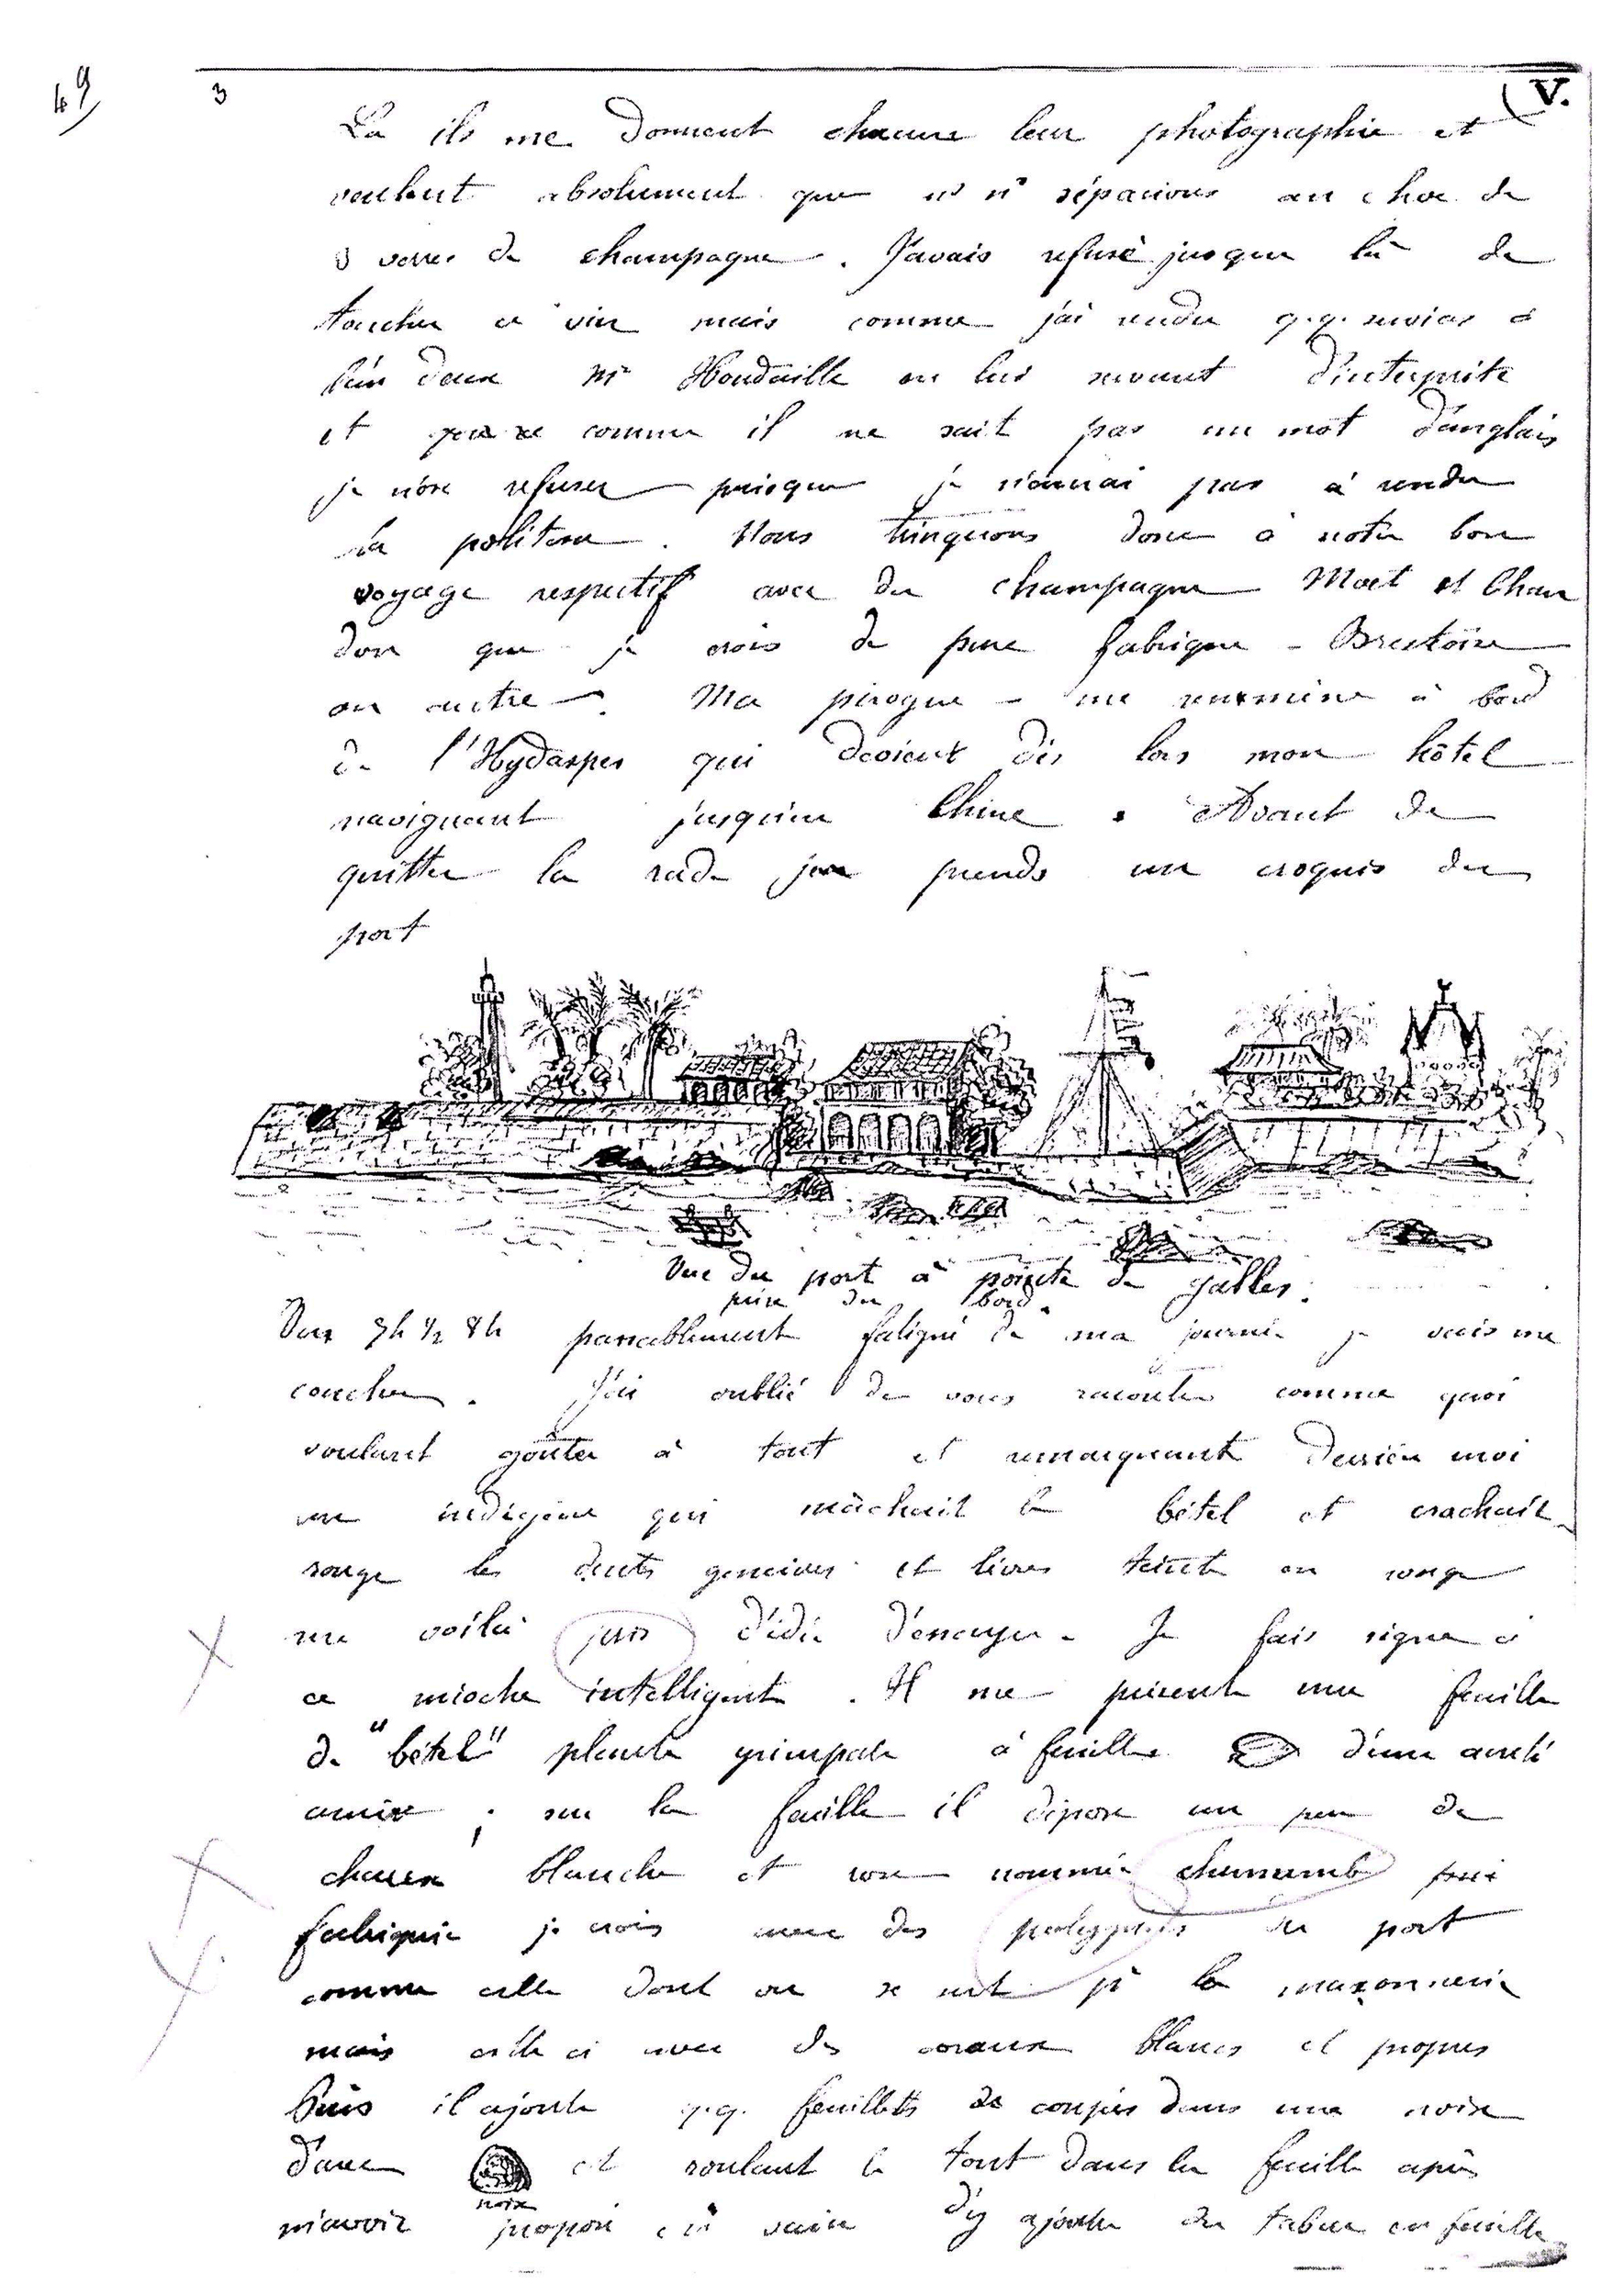 49
3
V.
Là ils me donnent chacun leur photographie et
veulent absolument que ns ns séparions au choc de
3 verres de champagne. J'avais refusé jusque là de
toucher ce vin mais comme j'ai rendu q.q. services à
l'un deux Mr Houdaille en lui servant d'interprète
et comme il ne sait pas un mot d'anglais
je n'ose refuser puisque je n'aurai pas à rendre
la politesse. Nous trinquons donc à notre bon
voyage respectif avec du champagne Moet et Chan
don que je crois de pure fabrique
ou autre. Ma pirogue me ramène à bord
de l'Hydaspes qui devient dès lors mon hôtel
naviguant jusqu'en Chine. Avant de
quitter la rade je prends un croquis du
port
Vue du port à pointe de Galles.
prise du bord.
Vers 7h ½ 8h passablement fatigué de ma journée je vais me
coucher. J'ai oublié de vous raconter comme quoi
voulant goûter à tout et remarquant derrière moi
un indigène qui mâchait le bétel et crachait
rouge les dents gencives et lèvres teint en rouge
me voilà pris d'idée d'essayer. Je fais signe à
ce mioche intelligent. Il me présente une feuille
de "bétel" plante grimpate à feuille d'une âcreté
amère ; sur la feuille il dépose un peu de
chaux blanche et rose nommée chunamb
fabriquée je crois avec des polypiers du port
comme celle dont on se sert pr la maçonnerie
mais celle ci avec des coraux blancs et propres
Puis il ajoute q.q. feuillets de coupés dans une noix
d'arec et roulant le tout dans la feuille après
noix
m'avoir proposé en vain d'y ajouter du tabac en feuille